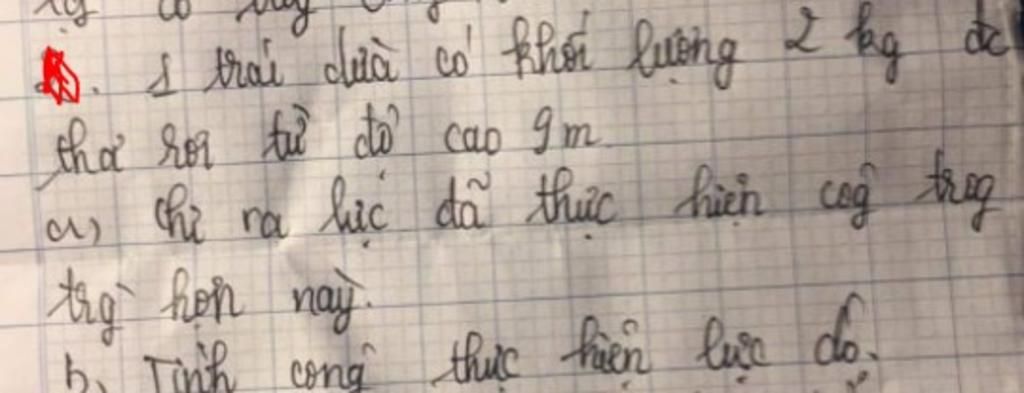 1 trái dừa có khối lượng 2 kg đc
thả rơi từ độ cao 9m
a) Chỉ ra lực đã thực hiện cog trog
trg hợp này.
b, Tính công thực hiện lực đó.